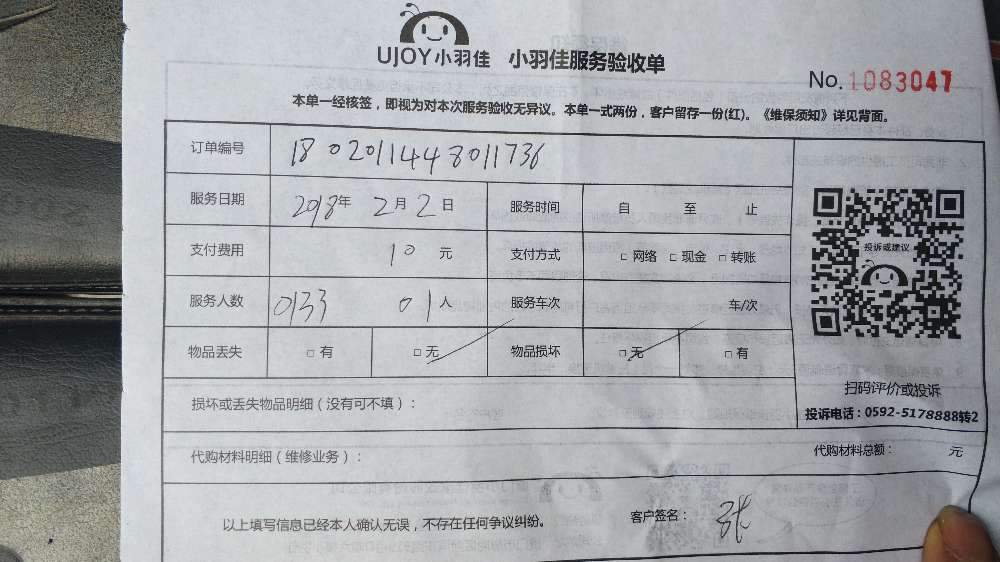 UJOY小羽佳 小羽佳服务验收单
No. 1083047
本单一经核签，即视为对本次服务验收无异议。本单一式两份，客户留存一份(红)。《维保须知》详见背面。
订单编号 1802011448011736
服务日期 2018年 2月 2日 服务时间 自 至 止
支付费用 10 元 支付方式 □ 网络 □ 现金 □ 转账
服务人数 0133 01人 服务车次 车/次
物品丢失 □ 有 □ 无 物品损坏 □ 无 □ 有
投诉或建议
扫码评价或投诉
投诉电话：0592-5178888转2
损坏或丢失物品明细（没有可不填）：
代购材料明细（维修业务）： 代购材料总额： 元
以上填写信息已经本人确认无误，不存在任何争议纠纷。 客户签名： 张